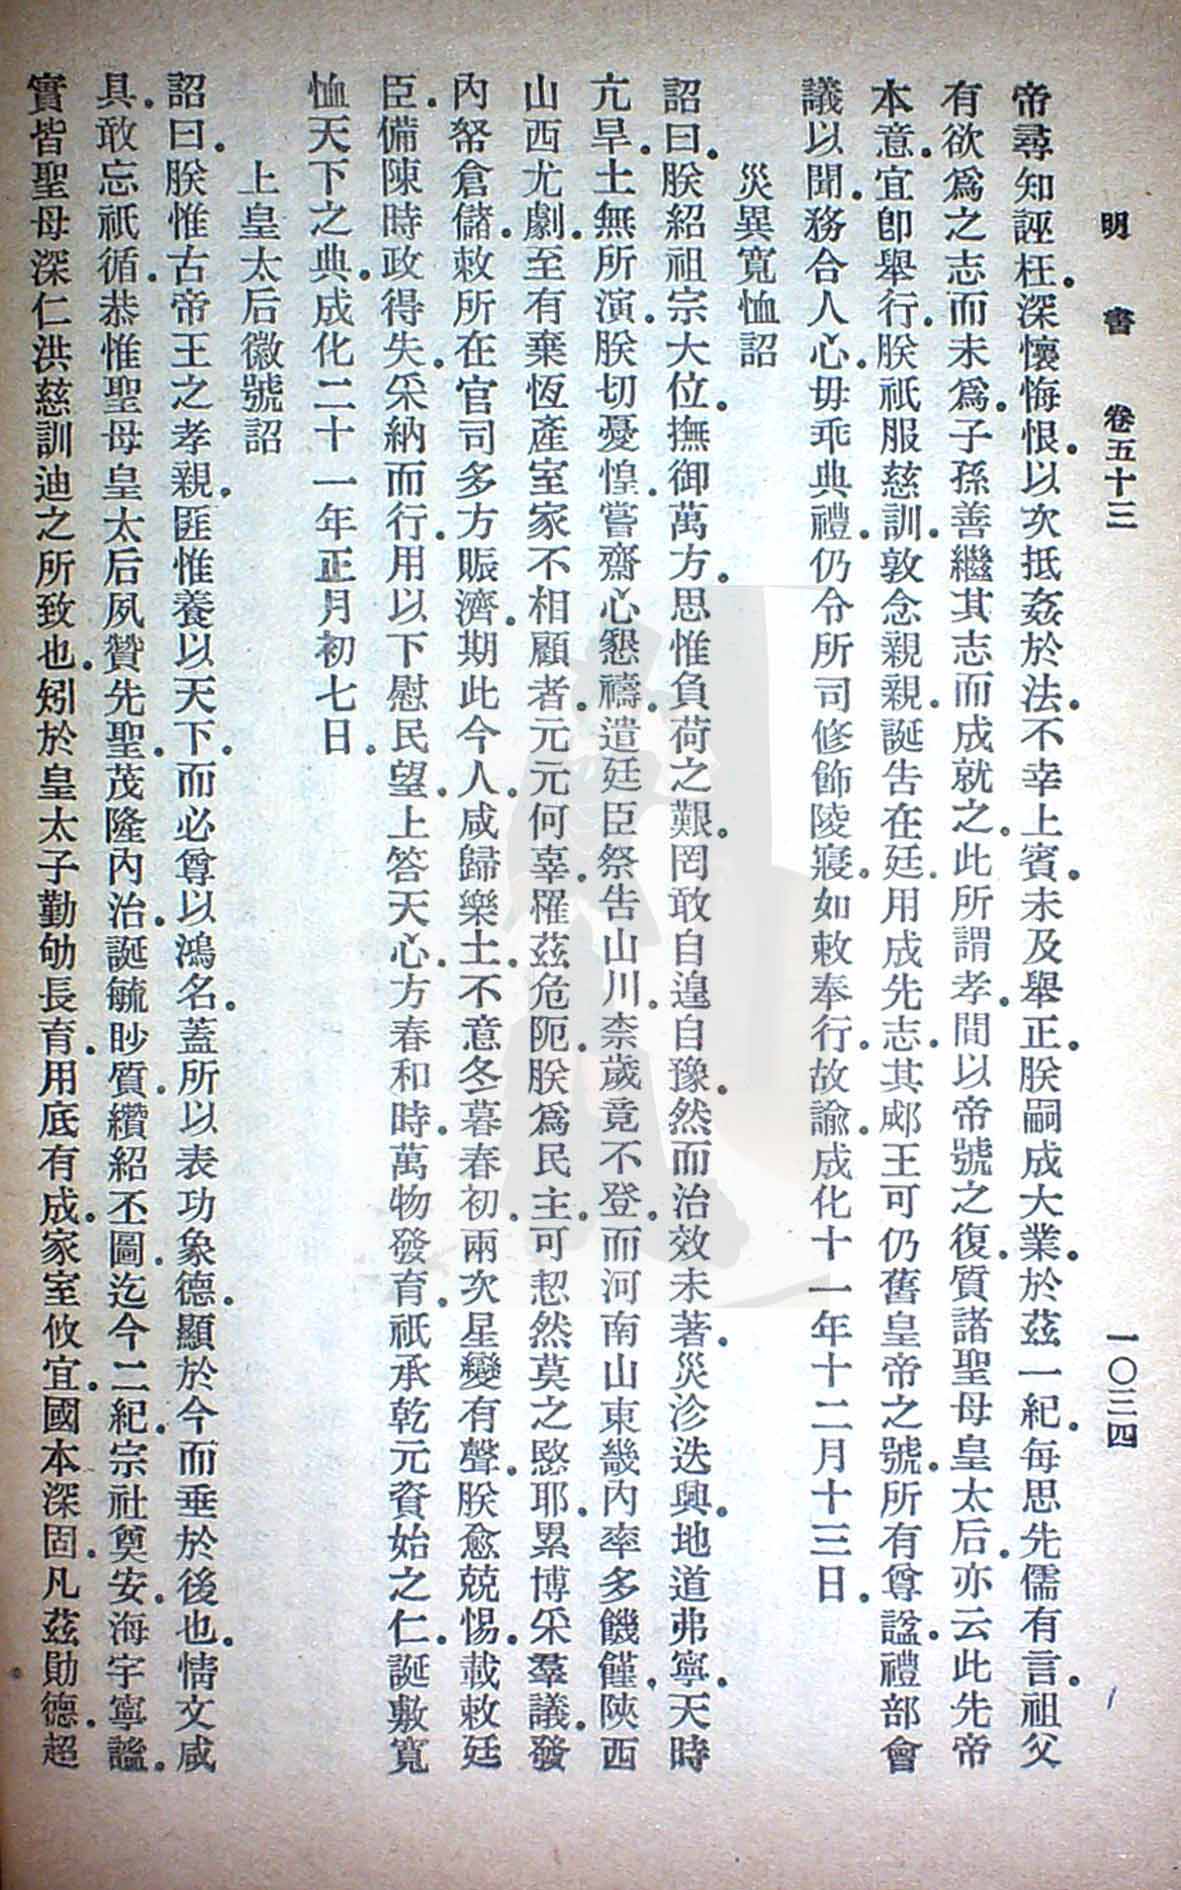 明書 卷五十三 一〇三四
帝尋知誣枉。深懷悔恨。以次抵姦於法。不幸上賓。未及舉正。朕嗣成大業。於茲一紀。每思先儒有言。祖父
有欲爲之志而未爲。子孫善繼其志而成就之。此所謂孝。間以帝號之復。質諸聖母皇太后。亦云此先帝
本意。宜卽舉行。朕祇服慈訓。敦念親親。誕告在廷。用成先志。其郕王可仍舊皇帝之號。所有尊諡。禮部會
議以聞。務合人心。毋乖典禮。仍令所司修飾陵寢。如敕奉行。故諭。成化十一年十二月十三日。
災異寬恤詔
詔曰。朕紹祖宗大位。撫御萬方。思惟負荷之艱。罔敢自遑自豫。然而治效未著。災沴迭興。地道弗寧。天時
亢旱。土無所演。朕切憂惶。嘗齋心懇禱。遣廷臣祭告山川。柰歲竟不登。而河南山東畿內率多饑饉。陝西
山西尤劇。至有棄恆產室家不相顧者。元元何辜。罹茲危阨。朕爲民主。可恝然莫之愍耶。累博采羣議。發
內帑倉儲。敕所在官司多方賑濟。期此今人。咸歸樂土。不意冬暮春初。兩次星變有聲。朕愈兢惕。載敕廷
臣。備陳時政得失。采納而行。用以下慰民望。上答天心。方春和時。萬物發育。祇承乾元資始之仁。誕敷寬
恤天下之典。成化二十一年正月初七日。
上皇太后徽號詔
詔曰。朕惟古帝王之孝親。匪惟養以天下。而必尊以鴻名。蓋所以表功象德。顯於今而垂於後也。情文咸
具。敢忘祇循。恭惟聖母皇太后夙贊先聖。茂隆內治。誕毓眇質。纘紹丕圖。迄今二紀。宗社奠安。海宇寧謐。
實皆聖母深仁洪慈訓迪之所致也。矧於皇太子勤劬長育。用底有成。家室攸宜。國本深固。凡茲勛德。超